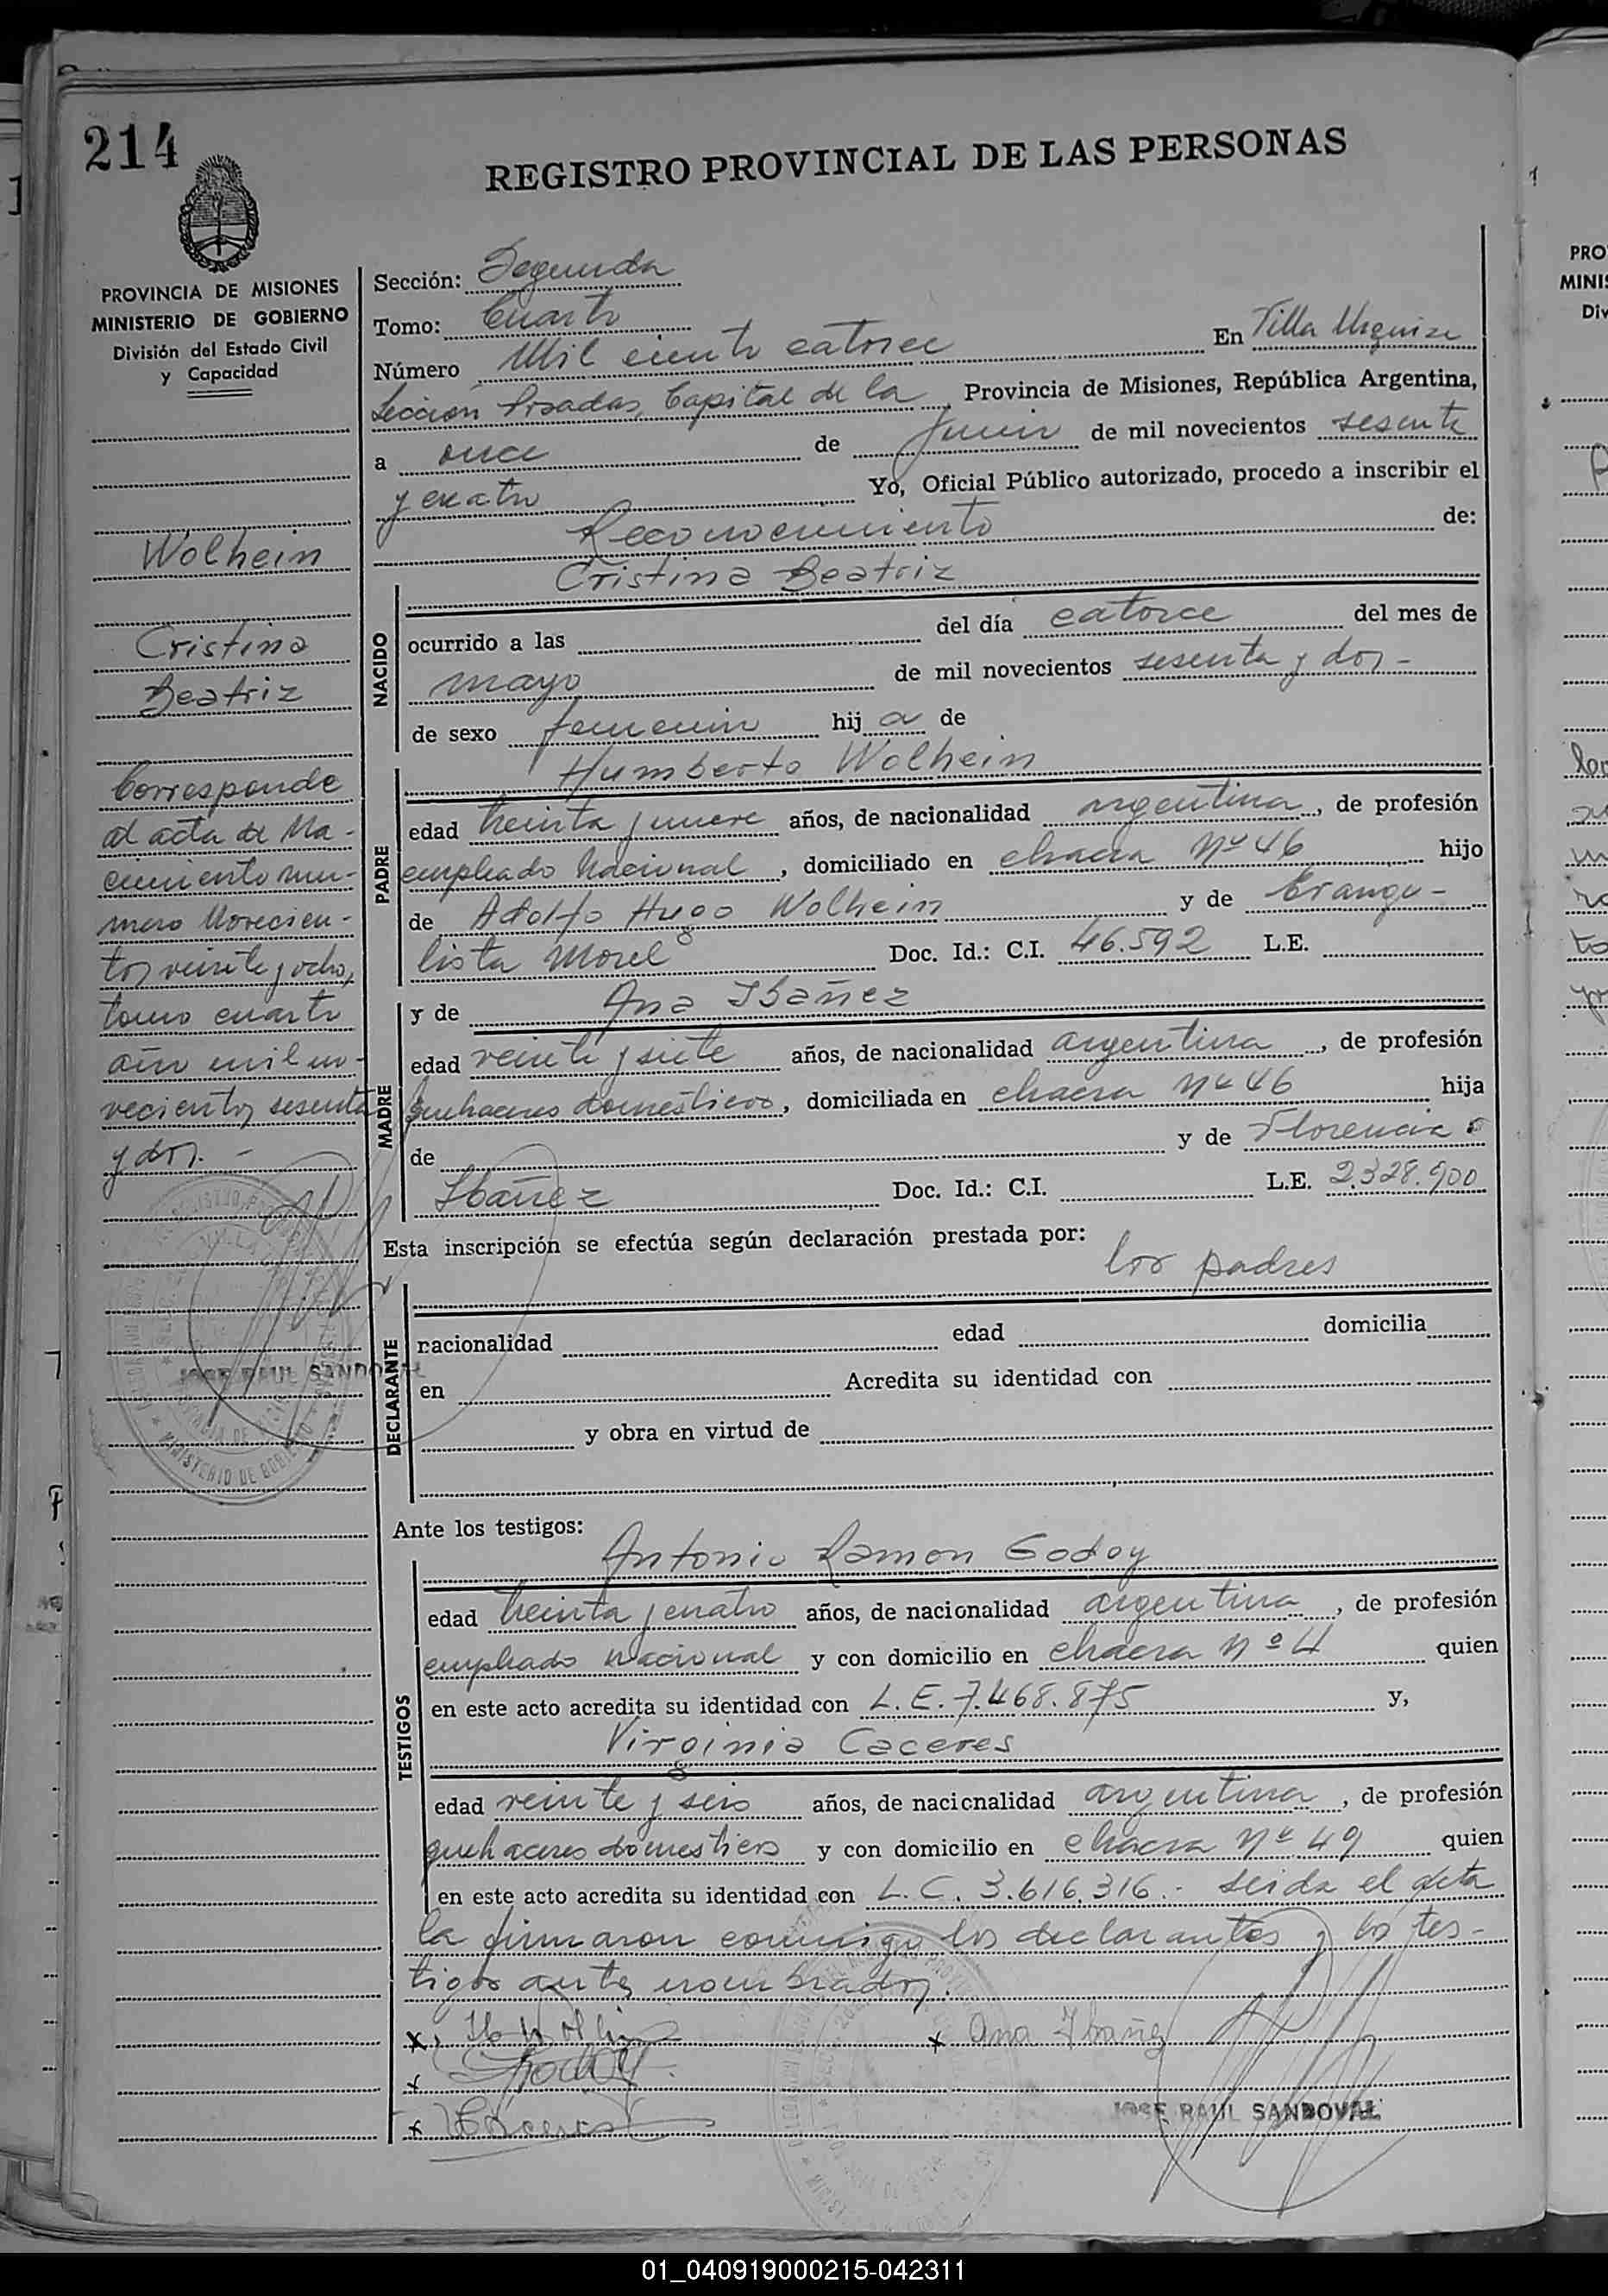 214
REGISTRO PROVINCIAL DE LAS PERSONAS
PROVINCIA DE MISIONES
MINISTERIO DE GOBIERNO
División del Estado Civil
y Capacidad
Wolhein
Cristina
Beatriz
Corresponde
al acta de Na-
cimiento nu-
mero Novecien-
tos veinte y ocho,
tomo cuarto
año mil no-
vecientos sesenta
y dos. -
JOSE RAUL SANDOVAL
Sección: Segunda
Tomo: Cuarto
Número Mil ciento catorce En Villa Urquiza
Sección Posadas, Capital de la Provincia de Misiones, República Argentina,
a once de Junio de mil novecientos sesenta
y cuatro Yo, Oficial Público autorizado, procedo a inscribir el
Reconocimiento de:
Cristina Beatriz
NACIDO
ocurrido a las del día catorce del mes de
mayo de mil novecientos sesenta y dos -
de sexo femenino hij a de
Humberto Wolhein
PADRE
edad treinta y nueve años, de nacionalidad argentina, de profesión
empleado Nacional, domiciliado en chacra Nº 46 hijo
de Adolfo Hugo Wolhein y de Evange-
lista Morel Doc. Id.: C.I. 46.592 L.E.
y de Ana Ibañez
MADRE
edad veinte y siete años, de nacionalidad argentina, de profesión
quehaceres domésticos, domiciliada en chacra Nº 46 hija
de y de Florencia
Ibañez Doc. Id.: C.I. L.E. 2.328.900
Esta inscripción se efectúa según declaración prestada por:
los padres
DECLARANTE
nacionalidad edad domicilia
en Acredita su identidad con
y obra en virtud de
Ante los testigos:
Antonio Ramon Godoy
TESTIGOS
edad treinta y cuatro años, de nacionalidad argentina, de profesión
empleado nacional y con domicilio en chacra Nº 4 quien
en este acto acredita su identidad con L.E. 7.468.875 y,
Virginia Caceres
edad veinte y seis años, de nacionalidad argentina, de profesión
quehaceres domesticos y con domicilio en chacra Nº 49 quien
en este acto acredita su identidad con L.C. 3.616.316.- Leida el acta
la firmaron conmigo los declarantes y los tes-
tigos antes nombrados.
x x Ana Ibañez
x Godoy
x Caceres
JOSE RAUL SANDOVAL
01_040919000215-042311